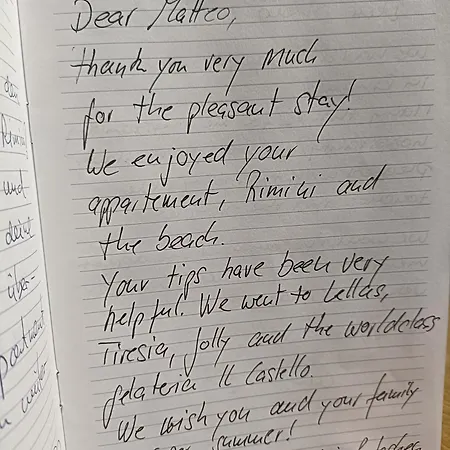 Dear Matteo,
thank you very much
for the pleasant stay!
We enjoyed your
appartement, Rimini and
the beach.
Your tips have been very
helpful. We went to Lellas,
Tiresia, Jolly and the worldclass
gelateria Il Castello.
We wish you and your family
summer!
und
deine
über-